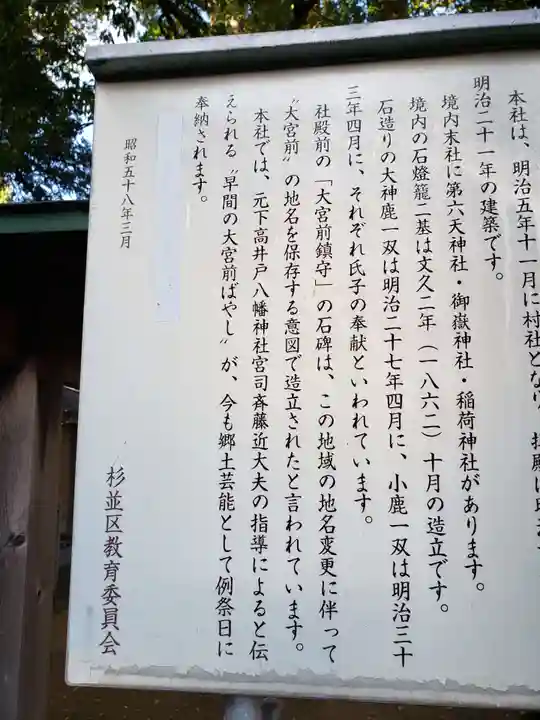 本社は、明治五年十一月に村社となり、拝殿は
明治二十一年の建築です。
境内末社に第六天神社・御嶽神社・稲荷神社があります。
境内の石燈籠二基は文久二年（一八六二）十月の造立です。
石造りの大神鹿一双は明治二十七年四月に、小鹿一双は明治三十
三年四月に、それぞれ氏子の奉献といわれています。
社殿前の「大宮前鎮守」の石碑は、この地域の地名変更に伴って
〝大宮前〟の地名を保存する意図で造立されたと言われています。
本社では、元下高井戸八幡神社宮司斉藤近大夫の指導によると伝
えられる〝早間の大宮前ばやし〟が、今も郷土芸能として例祭日に
奉納されます。
昭和五十八年三月
杉並区教育委員会